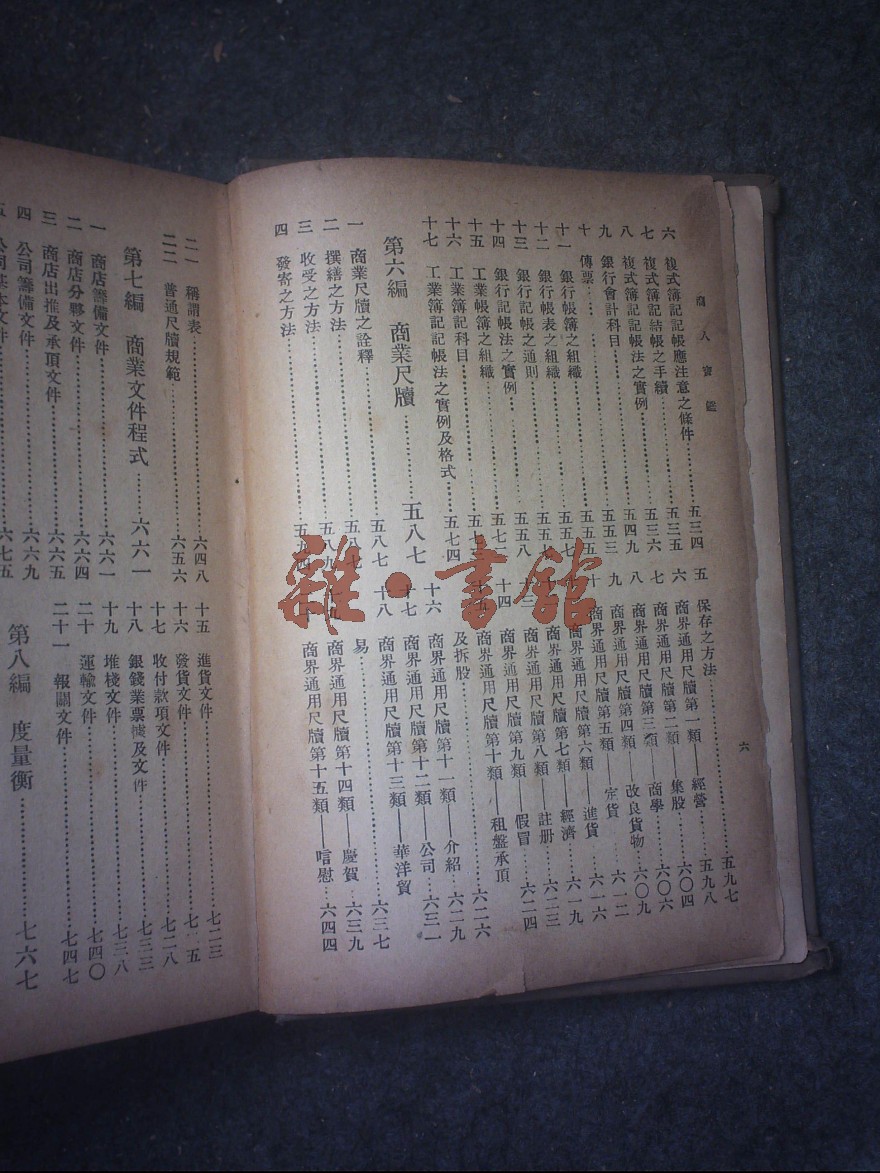 商人寶鑑
六
六 複式簿記記帳應注意之條件……五三四
七 複式簿記結帳之手續……五三五
八 複式簿記記帳法之實例……五三六
九 銀行會計科目……五四九
十 傳票……五五三
十一 銀行帳簿之組織……五五五
十二 銀行帳表之組織……五五七
十三 銀行記帳之通則……五五七
十四 銀行記帳法之實例……五五八
十五 工業帳簿之組織……五七二
十六 工業簿記科目……五七三
十七 工業簿記記帳法之實例及格式……五七四
第六編 商業尺牘……五八七
一 商業尺牘之詮釋……五八七
二 撰繕之方法……五八七
三 收受之方法……五八九
四 發寄之方法……五九四
五 保存之方法……五九七
六 商界通用尺牘第一類——經營……五九八
七 商界通用尺牘第二類——集股……六〇四
八 商界通用尺牘第三類——商學……六〇六
九 商界通用尺牘第四類——改良貨物……六〇九
十 商界通用尺牘第五類——定貨……六一二
商界通用尺牘第六類——進貨……六一六
商界通用尺牘第七類——經濟……六一九
商界通用尺牘第八類——註册……六二三
十四 商界通用尺牘第九類——假冒……六二四
商界通用尺牘第十類——租盤承頂
及拆股……六二六
十六 商界通用尺牘第十一類——介紹……六二九
十七 商界通用尺牘第十二類——公司……六三一
十八 商界通用尺牘第十三類——華洋貿
易……六三七
商界通用尺牘第十四類——慶賀……六三九
商界通用尺牘第十五類——唁慰……六四四
二一 稱謂表……六四八
二二 普通尺牘規範……六五六
第七編 商業文件程式……六六一
一 商店籌備文件……六六一
二 商店分夥文件……六六四
三 商店出推及承頂文件……六六五
四 公司籌備文件……六六九
五 公司基本文件……六七五
十五 進貨文件……七二三
十六 發貨文件……七二五
十七 收付款項文件……七二八
十八 銀錢業票據及文件……七三三
十九 堆棧文件……七三八
二十 運輸文件……七四〇
二十一 報關文件……七四七
第八編 度量衡……七六七
雜·書館